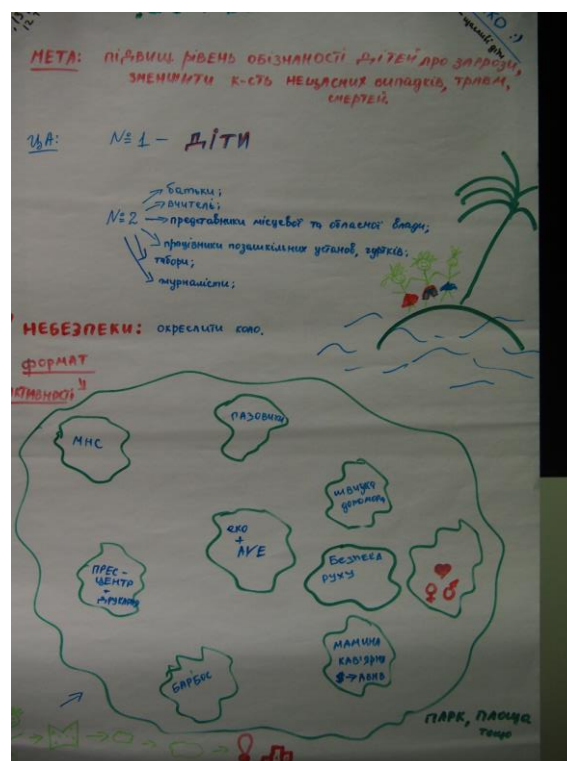 МЕТА: ПІДВИЩ РІВЕНЬ ОБІЗНАНОСТІ ДІТЕЙ ПРО ЗАГРОЗИ,
ЗМЕНШИТИ К-СТЬ НЕЩАСНИХ ВИПАДКІВ, ТРАВМ,
СМЕРТЕЙ.
ЦА: №1 – ДІТИ
батьки;
вчитель;
№2 представники місцевої та обласної влади;
працівники позашкільних установ, гуртків;
табори;
журналісти;
НЕБЕЗПЕКИ: ОКРЕСЛИТИ КОЛО.
ФОРМАТ
МНС
ГАЗОВИКИ
ШВИДКА
ДОПОМОГА
ЕКО
+
ПРЕС-
ЦЕНТР
+
БЕЗПЕКА
РУХУ
МАМИНА
КАВ'ЯРНЯ
БАРБОС
ПАРК, ПЛОЩА
тощо